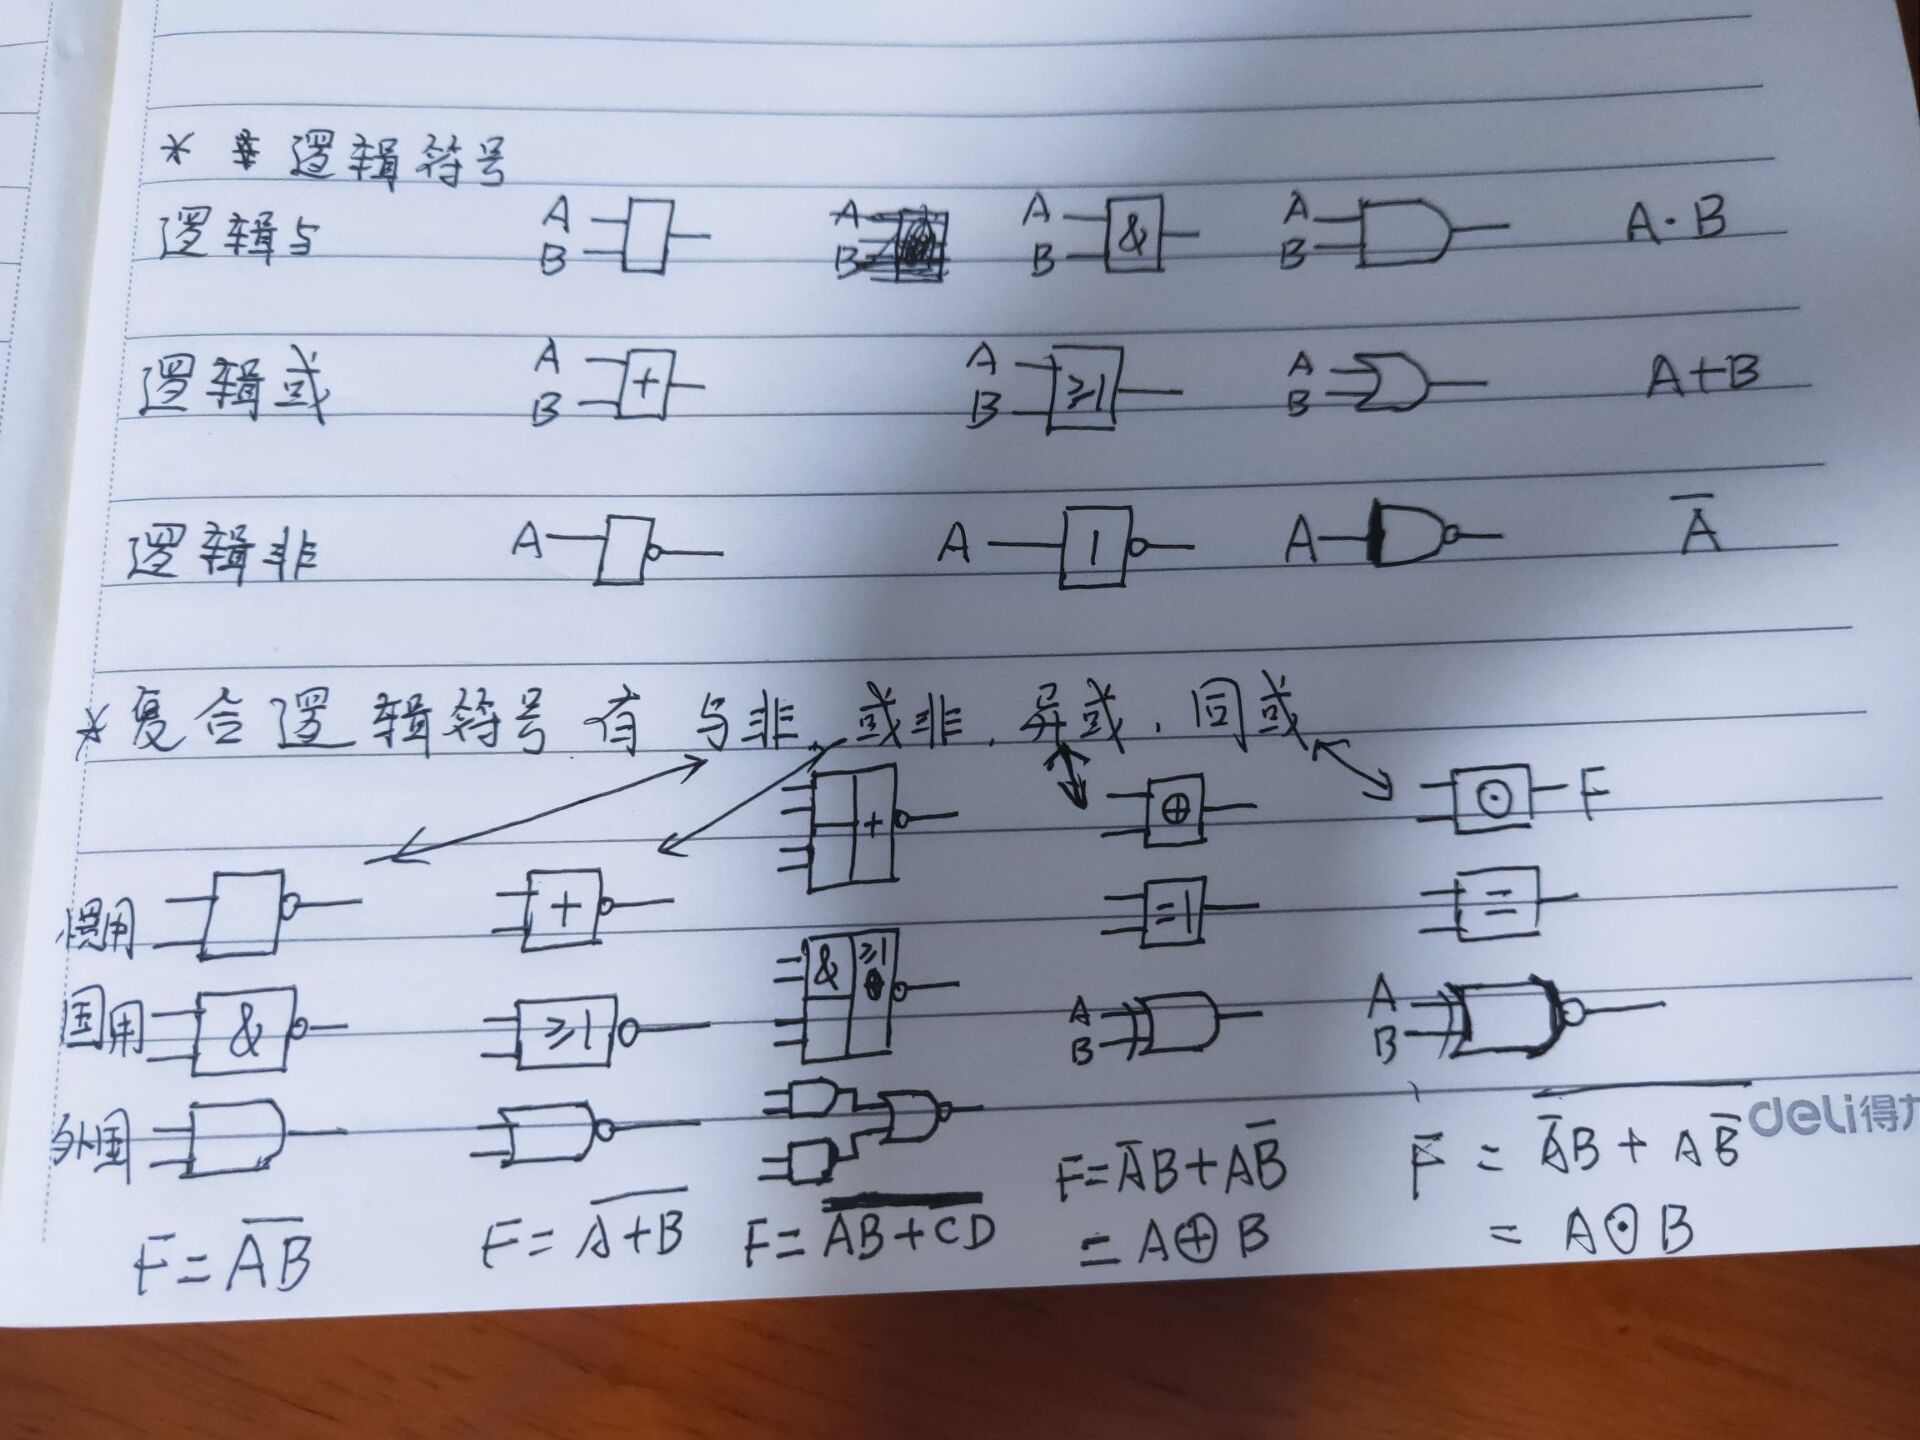 * 逻辑符号
逻辑与 A B A B A B & A B A·B
逻辑或 A B + A B ≥1 A B A+B
逻辑非 A A 1 A A̅
* 复合逻辑符号有 与非、或非、异或、同或
+ ⊕ ⊙ F
惯用 + =1 =
& ≥1
国用 & ≥1 A B A B
外国
deli得力
F=A̅B+AB̅ F = \overline{A̅B + AB̅}
F=\overline{AB} F=\overline{A+B} F=\overline{AB+CD} =A⊕B = A⊙B